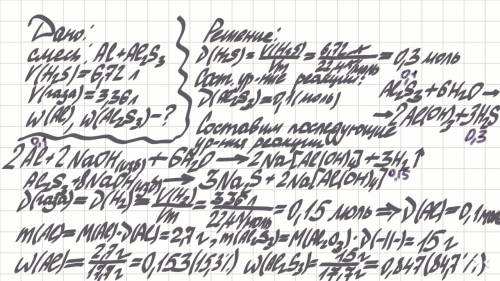 Дано:
смесь: Al+Al₂S₃
V(H₂S)=6,72 л
V(газа)=3,36 л
w(Al), w(Al₂S₃)-?
Решение:
ν(H₂S)=V(H₂S)/Vm=6,72 л/22,4 л/моль=0,3 моль
Сост. ур-ние реакции:
0,1
Al₂S₃+6H₂O→
ν(Al₂S₃)=0,1(моль)
→2Al(OH)₃+3H₂S
0,3
Составим последующие
ур-ния реакций
0,1
2Al+2NaOH(изб)+6H₂O→2Na[Al(OH)₄]+3H₂↑
0,15
Al₂S₃+8NaOH(изб)→3Na₂S+2Na[Al(OH)₄]
ν(газа)=ν(H₂)=V(H₂)/Vm=3,36 л/22,4 л/моль=0,15 моль⇒ν(Al)=0,1моль
m(Al)=M(Al)·ν(Al)=2,7 г, m(Al₂S₃)=M(Al₂O₃)·ν(-||-)=15 г
w(Al)=2,7 г/17,7 г=0,153(15,3%) w(Al₂S₃)=15 г/17,7 г=0,847(84,7%)